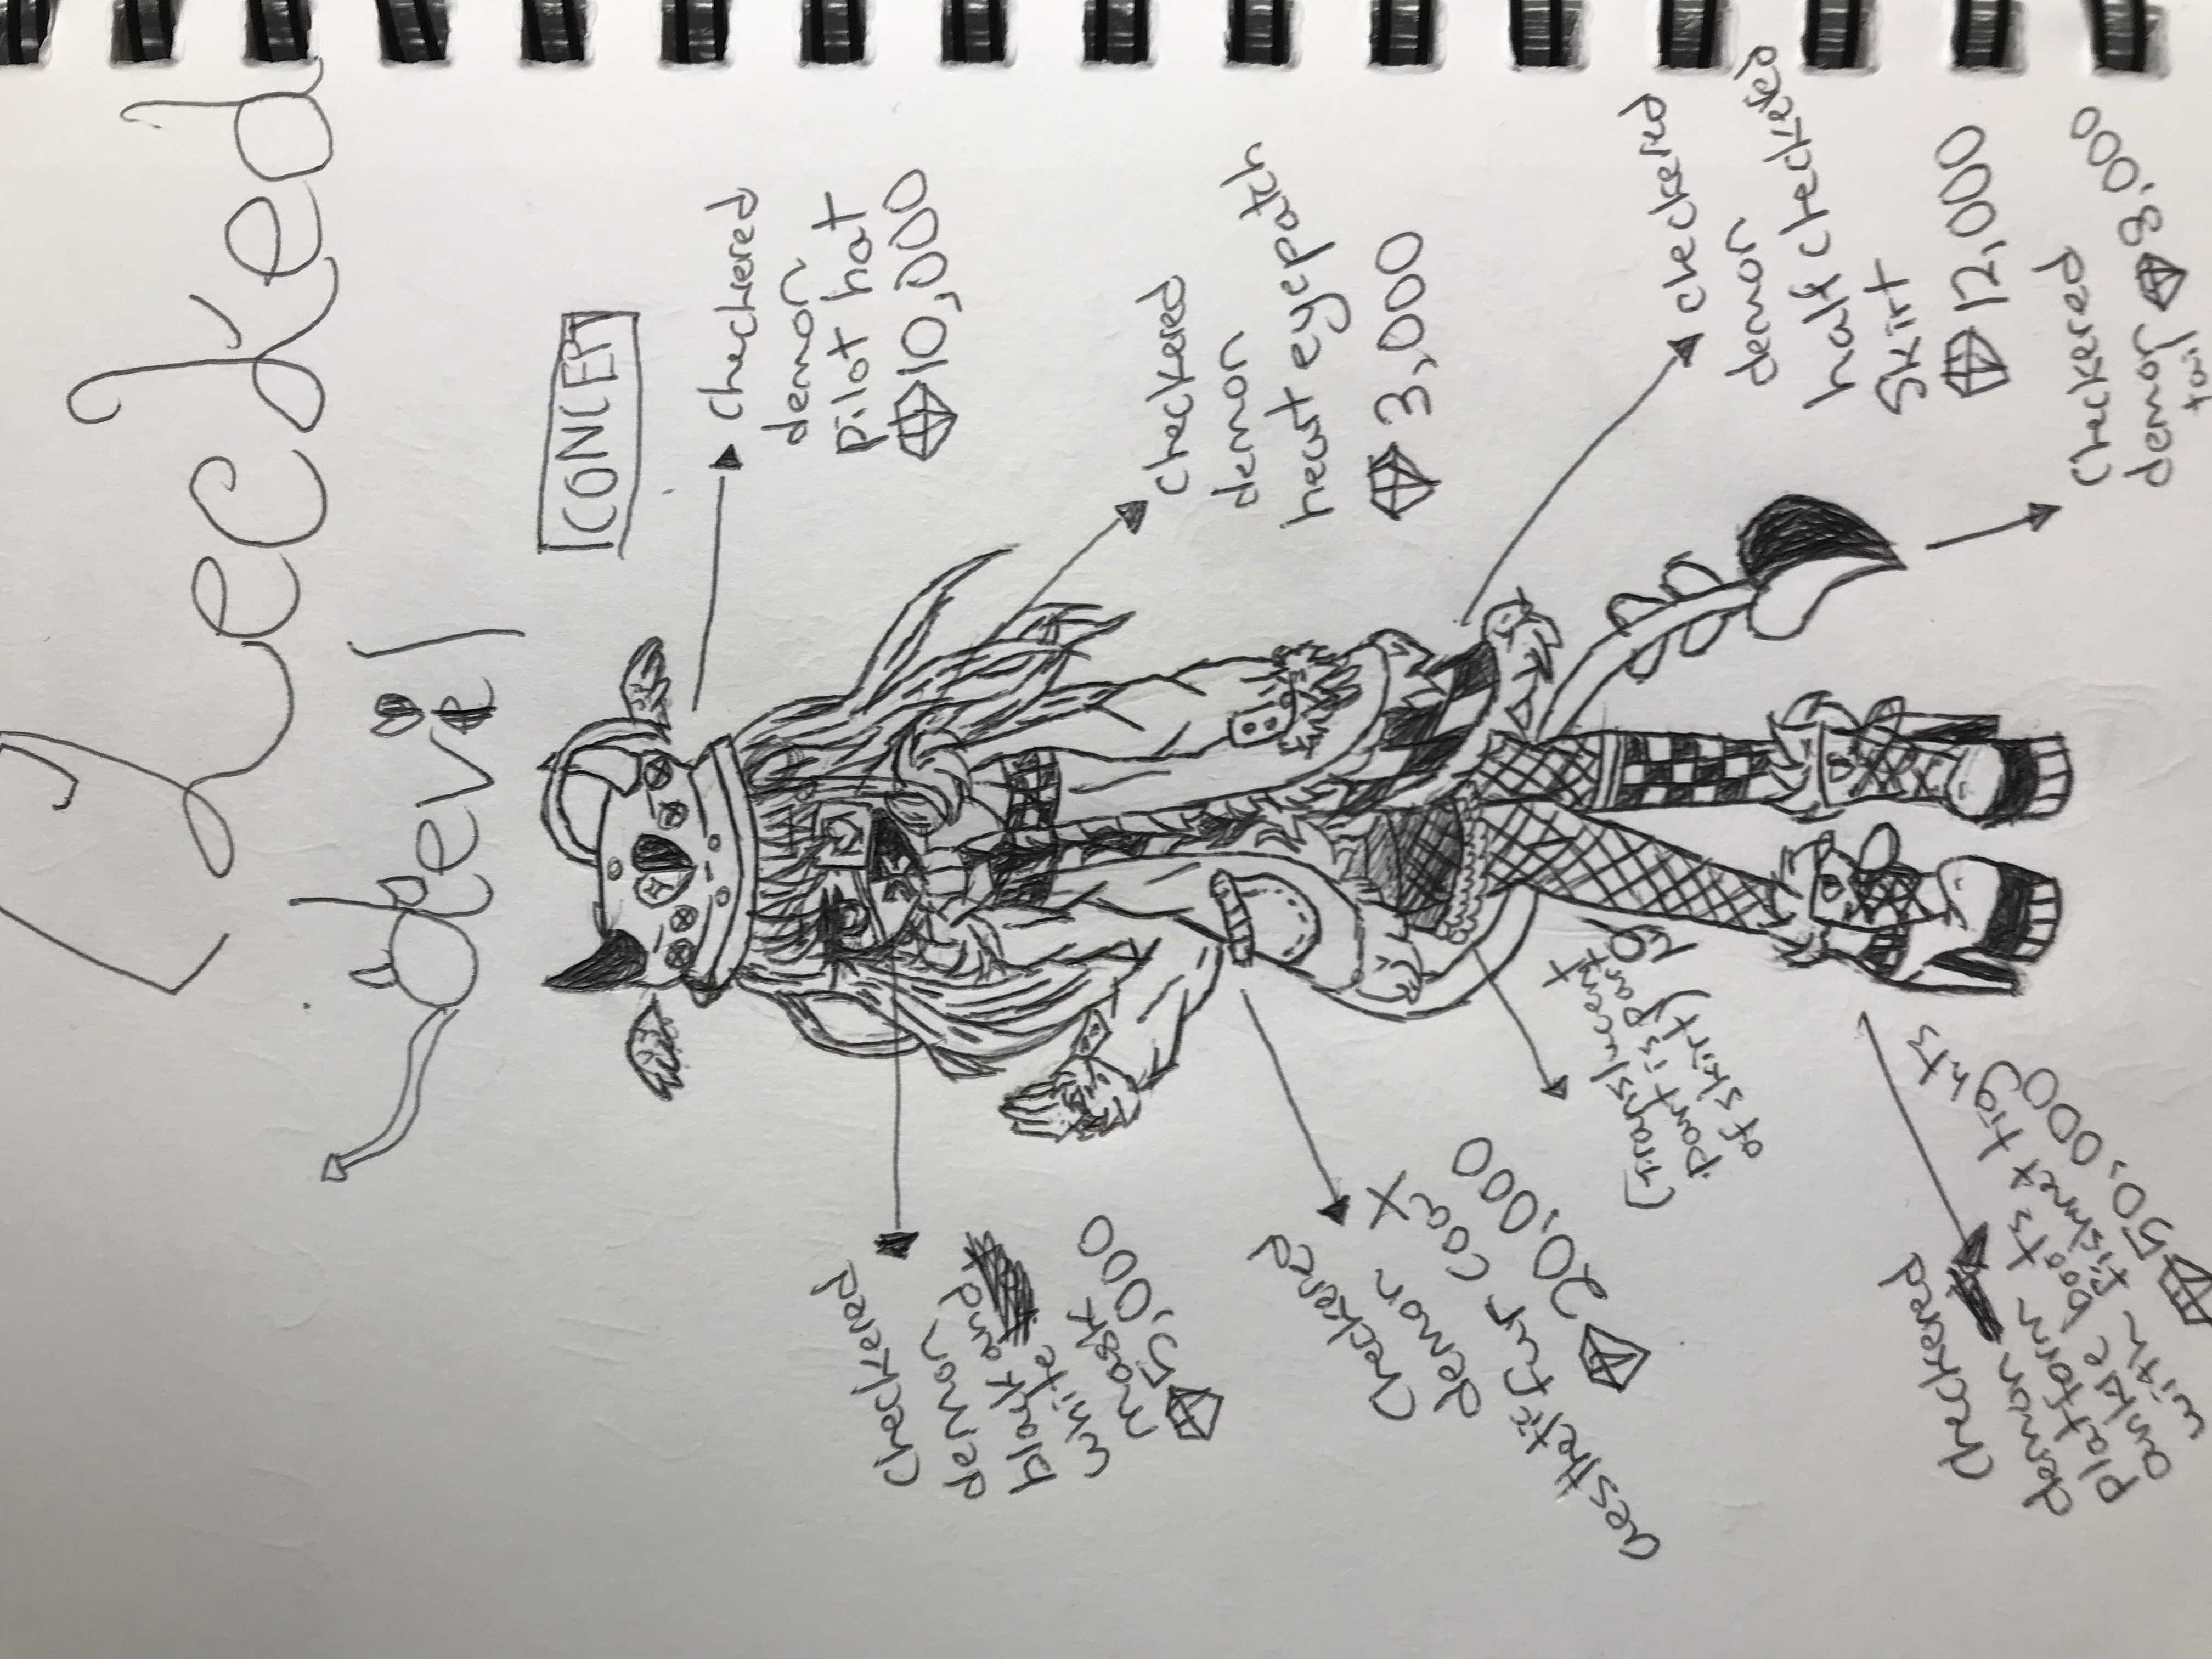 checked
devil
CONCEPT
checkered
demon
pilot hat
10,000
checkered
demon
heart eyepatch
3,000
checkered
demon
half checkered
skirt
12,000
checkered
demon 8,000
tail
checkered
demon
black and
white
mask
5,000
checkered
demon
aesthetic fur coat
20,000
(translucent
part is part
of skirt)
checkered
demon
platform
ankle boots
with fishnet tights
50,000